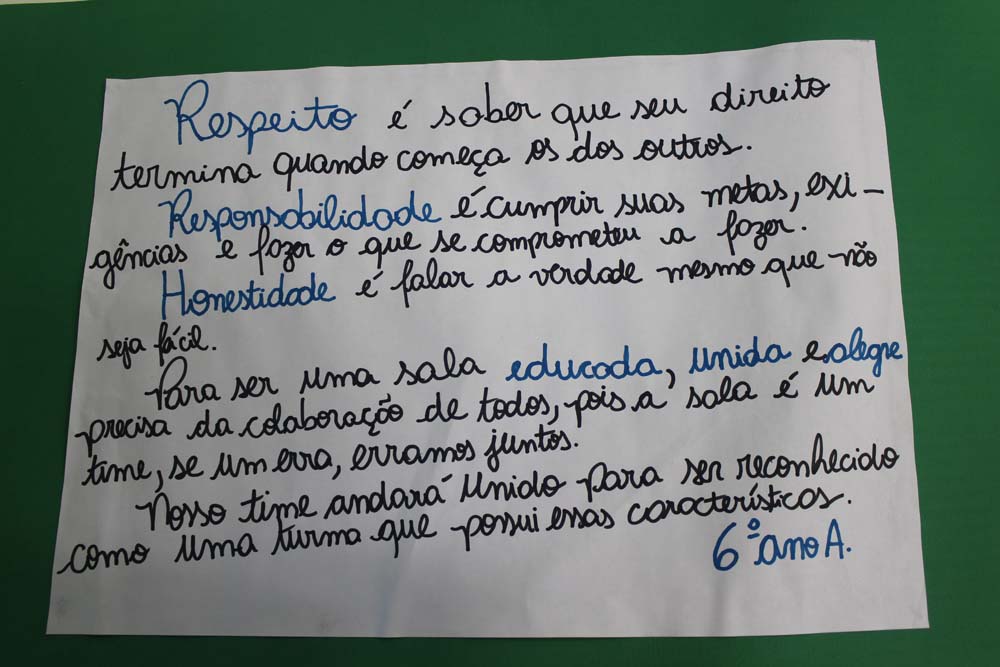 Respeito é saber que seu direito
termina quando começa os dos outros.
Responsabilidade é cumprir suas metas, exi-
gências e fazer o que se comprometeu a fazer.
Honestidade é falar a verdade mesmo que não
seja fácil.
Para ser uma sala educada, unida e alegre
precisa da colaboração de todos, pois a sala é um
time, se um erra, erramos juntos.
Nosso time andará unido para ser reconhecido
como uma turma que possui essas características.
6º ano A.